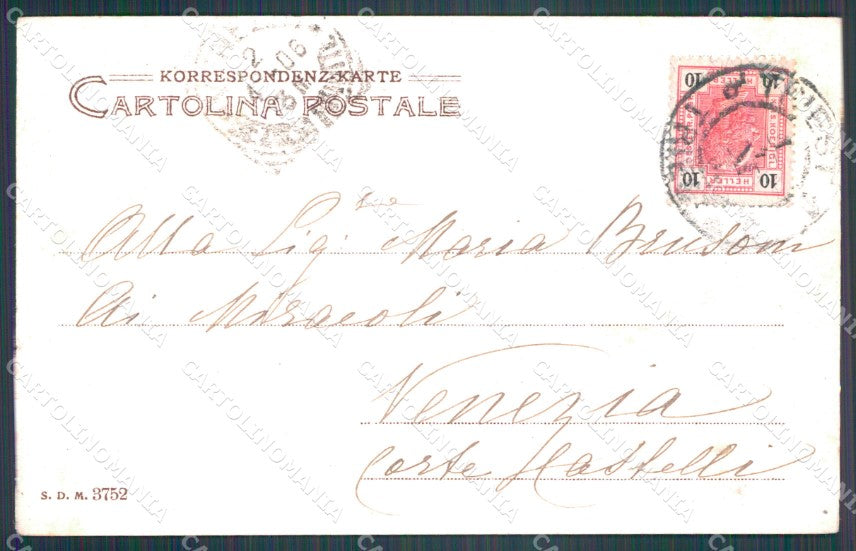 KORRESPONDENZ-KARTE
CARTOLINA POSTALE
2
06
10 10
HELLER
10 10
TRIEST
Alla Sig:ra Maria Brusoni
Ai Miracoli
Venezia
Corte Castelli
S. D. M. 3752
CARTOLINOMANIA